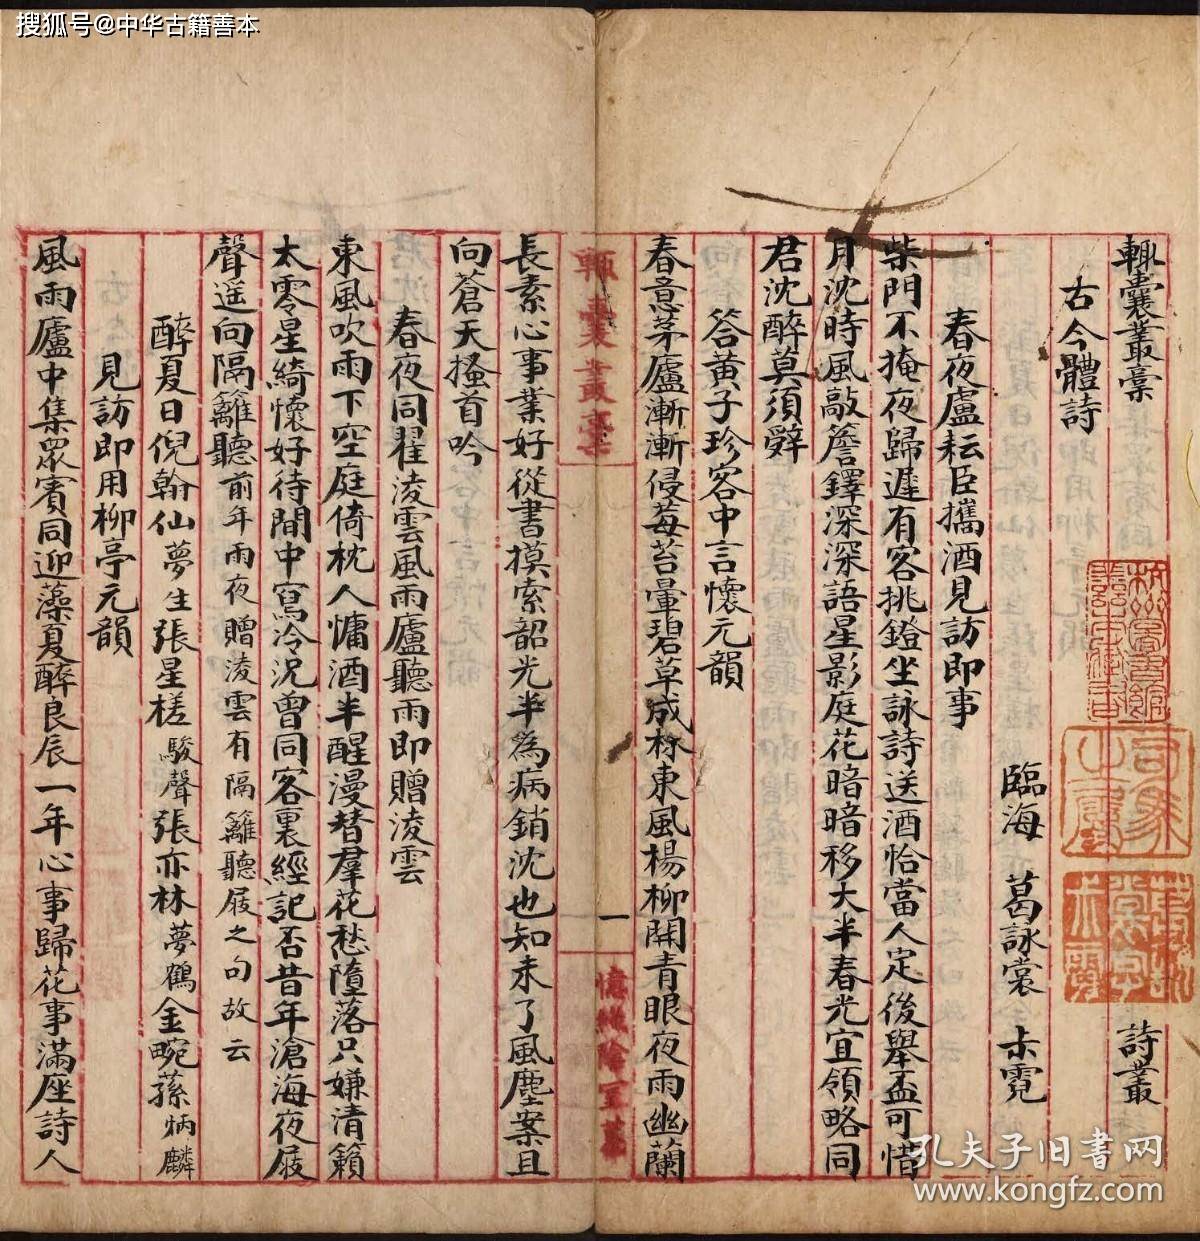 搜狐号@中华古籍善本
輒囊叢稾　詩叢
古今體詩
臨海　葛詠裳　朩霓
春夜盧耘臣攜酒見訪即事
柴門不掩夜歸遲有客挑鐙坐詠詩送酒恰當人定後舉盃可惜
月沈時風敲簷鐸深深語星影庭花暗暗移大半春光宜領略同
君沈醉莫須辤
答黄子珍客中言懷元韻
春意茅廬漸漸侵莓苔暈碧草成林東風楊柳開青眼夜雨幽蘭
輒囊叢稾
一
憶綠陰室
長素心事業好從書摸索韶光半為病銷沈也知未了風塵案且
向蒼天搔首吟
春夜同翟淩雲風雨廬聽雨即贈淩雲
東風吹雨下空庭倚枕人慵酒半醒漫替羣花愁墮落只嫌清籟
太零星綺懷好待閒中寫冷況曾同客裏經記否昔年滄海夜屐
聲遥向隔籬聽前年雨夜贈淩雲有隔籬聽屐之句故云
醉夏日倪翰仙夢生張星槎駿聲張亦林夢鶴金畹蓀炳麟
見訪即用柳亭元韻
風雨廬中集眾賓同迎藻夏醉良辰一年心事歸花事滿座詩人
孔夫子旧书网
www.kongfz.com